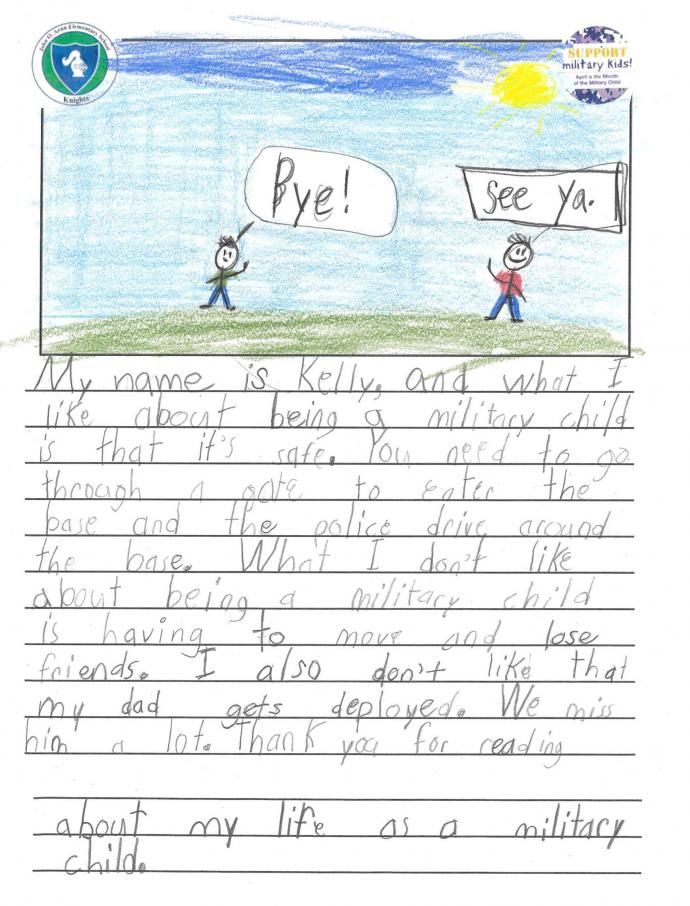 John O. Arnn Elementary School
Knights
SUPPORT
military kids!
April is the Month
of the Military Child
Bye!
see ya.
My name is Kelly, and what I
like about being a military child
is that it's safe. You need to go
through a gate to enter the
base and the police drive around
the base. What I don't like
about being a military child
is having to move and lose
friends. I also don't like that
my dad gets deployed. We miss
him a lot. Thank you for reading
about my life as a military
child.